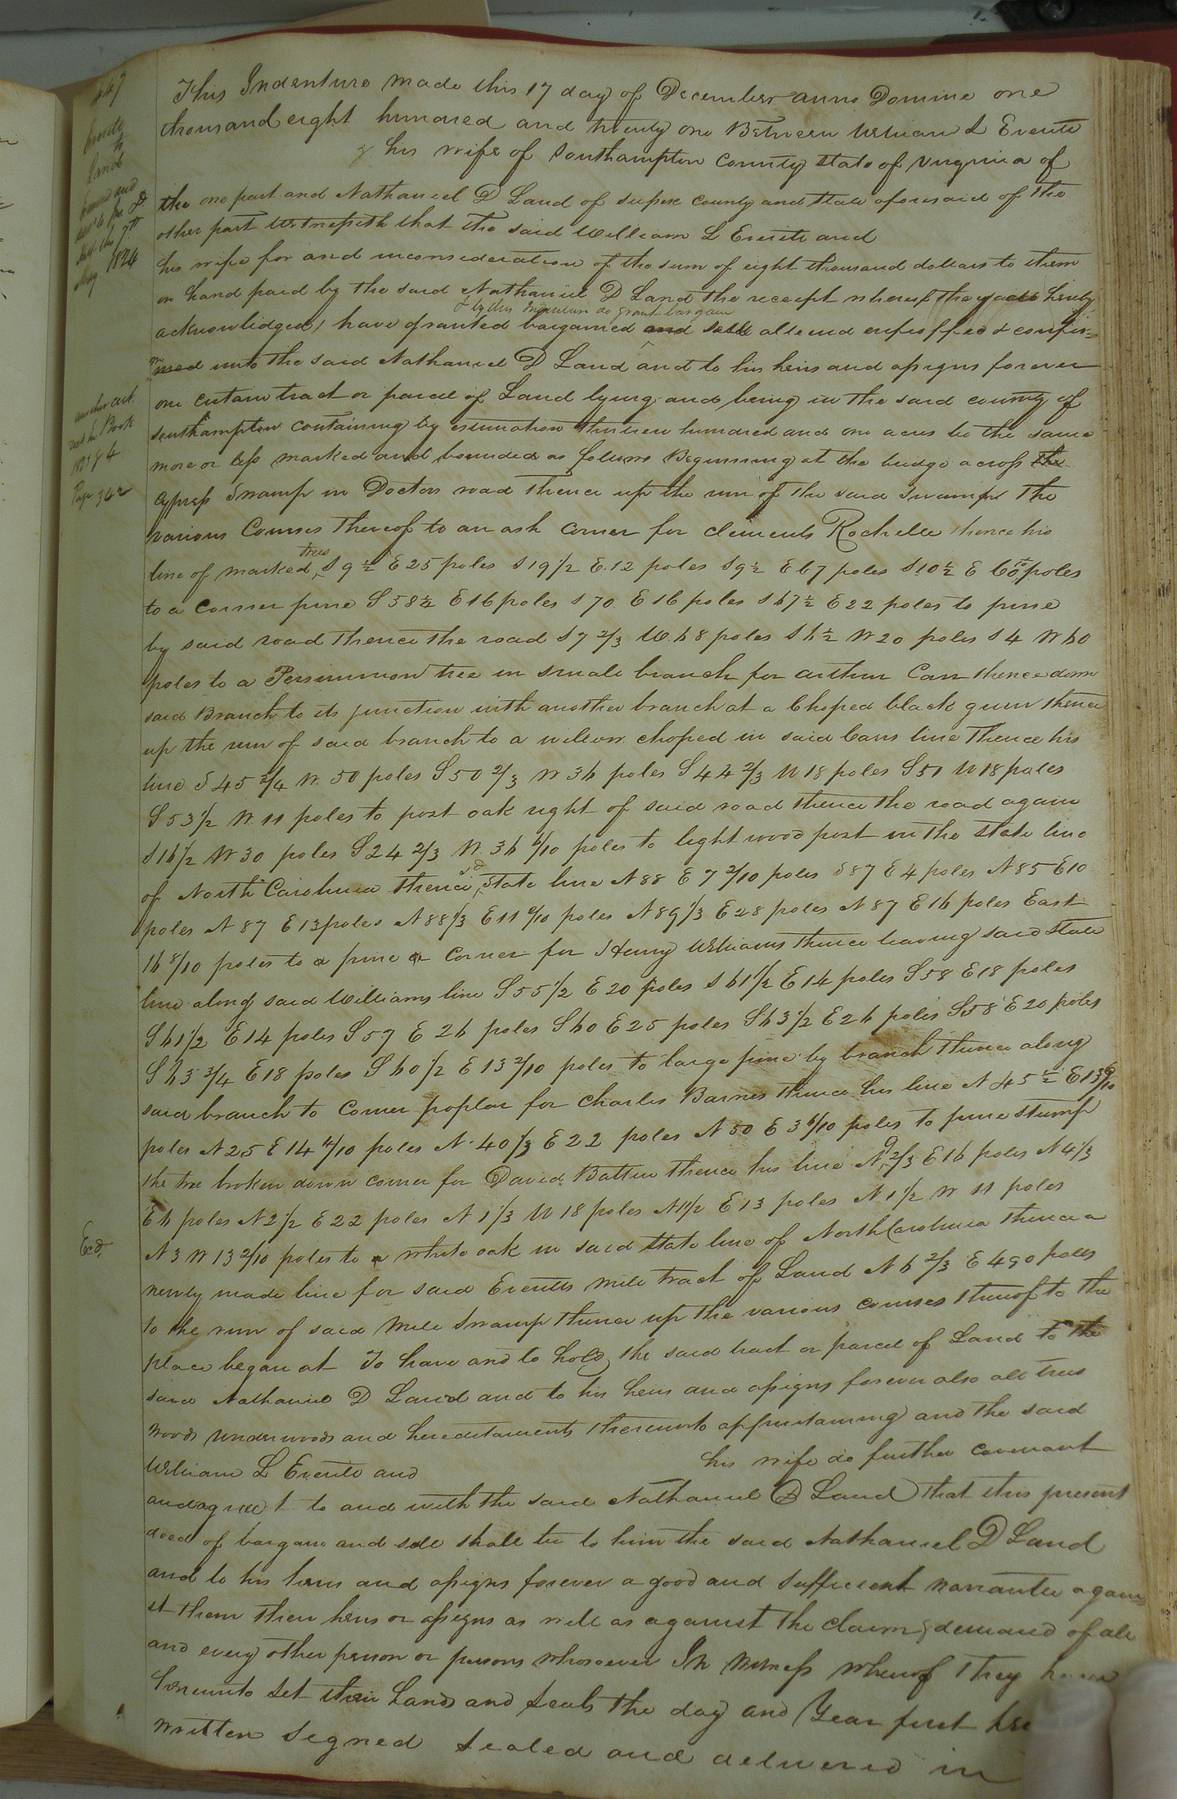 447
Everite
to
Land
Examined and
deld to
the 7th
May 1824
another cert.
Book
1821 & 4
Page 342
This Indenture made this 17 day of December anno Domine one
thousand eight hundred and twenty one Between William L Everite
& his wife of Southampton County State of Virginia of
the one part and Nathaniel D Land of Sussex County and State aforesaid of the
other part Witnesseth that the said William L Everite and
his wife for and inconsideration of the sum of eight thousand dollars to them
in hand paid by the said Nathaniel D Land the receipt whereof they hereby
& by this Indenture do grant bargain
acknowledged, have granted bargained and sold aliened enfeoffed & confir=
med unto the said Nathaniel D Land and to his heirs and assigns forever
one certain tract or parcel of Land lying and being in the said county of
Southampton containing by estimation thirteen hundred and one acres be the same
more or less marked and bounded as follows Beginning at the bridge across the
Cypress Swamp in Doctors road thence up the run of the said Swamp the
various Courses thereof to an ash corner for Clements Rochelle thence his
line of marked trees S 9 ½ E 25 poles S 19 1/2 E. 12 poles S 9 ½ E 67 poles S 10 ½ E 60 poles
to a corner pine S 58 ½ E 16 poles S 70 E 16 poles S 67 ½ E 22 poles to pine
by said road thence the road S 7 2/3 W. 68 poles S 6 ½ W 20 poles S 4 W 60
poles to a Persimmon tree in small branch for Arthur Carr thence down
said Branch to its junction with another branch at a Choped black gum thence
up the run of said branch to a willow choped in said Carrs line thence his
line S 45 3/4 W. 50 poles S 50 2/3 W 36 poles S 44 2/3 W 18 poles S 51 W 18 poles
S 53 1/2 W. 11 poles to post oak right of said road thence the road again
S 16 1/2 W 30 poles S 24 2/3 W. 36 6/10 poles to light wood post in the State line
of North Carolina thence sd State line N 88 E 7 2/10 poles S 87 E 4 poles N 85 E 10
poles N 87 E 13 poles N 88 1/3 E 11 poles N 89 1/3 E 28 poles N 87 E 16 poles East
16 8/10 poles to a pine a corner for Henry Williams thence leaving said State
line along said Williams line S 55 1/2 E 20 poles S 61 1/2 E 14 poles S 58 E 18 poles
S 61 1/2 E 14 poles S 57 E 26 poles S 60 E 25 poles S 63 1/2 E 26 poles S 58 E 20 poles
S 63 3/4 E 18 poles S 60 1/2 E 13 2/10 poles to large pine by branch thence along
said branch to corner poplar for Charles Barnes thence his line N 45 ½ E 13 poles
poles N 25 E 14 poles N. 40 1/3 E 22 poles N 50 E 3 6/10 poles to pine stump
the tree broken down corner for David Batten thence his line N 9 2/3 E 16 poles N 4 1/3
E 6 poles N 2 1/2 E 22 poles N 1 1/3 W 18 poles N 1 1/2 E 13 poles N 1 1/2 W 11 poles
Exd.
N 3 W 13 2/10 poles to a white oak in said State line of North Carolina thence a
newly made line for said Everitts mill tract of Land N 6 2/3 E 490 poles
to the run of said Mill Swamp thence up the various courses thereof to the
place began at To have and to hold the said tract or parcel of Land to the
said Nathaniel D Land and to his heirs and assigns forever also all trees
woods underwoods and hereditaments thereunto appurtaining and the said
William L Everite and his wife do further covenant
and agree t to and with the said Nathaniel D Land that this present
deed of bargain and sale shall be to him the said Nathaniel D Land
and to his heirs and assigns forever a good and sufficient warrantee again
st them their heirs or assigns as well as against the claim & demand of all
and every other person or persons whosoever In Witness whereof they have
hereunto set their hands and seals the day and Year first
written Signed Sealed and delivered in